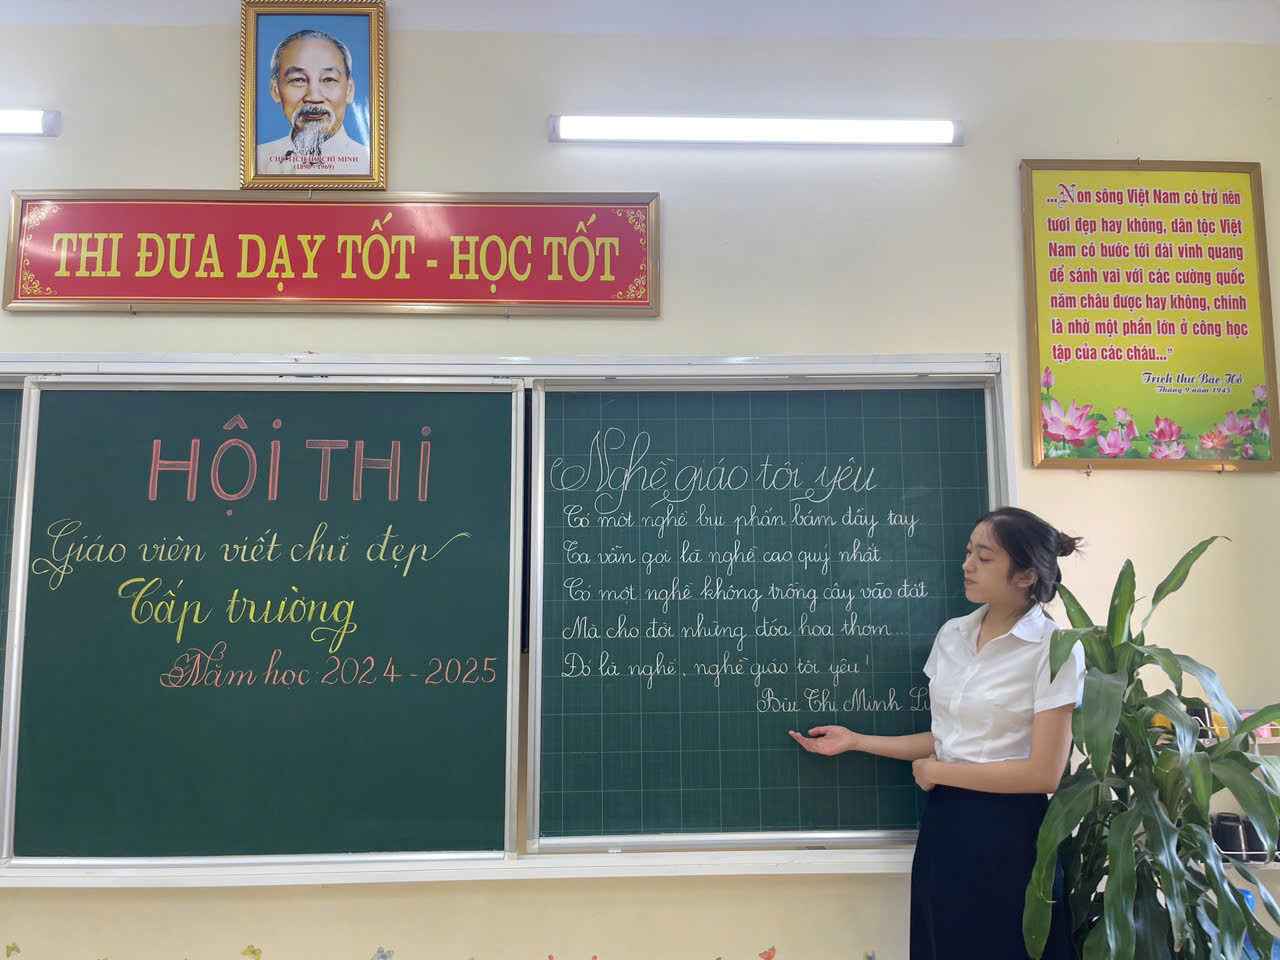 CHỦ TỊCH HỒ CHÍ MINH
(1890 - 1969)
THI ĐUA DẠY TỐT - HỌC TỐT
...Non sông Việt Nam có trở nên
tươi đẹp hay không, dân tộc Việt
Nam có bước tới đài vinh quang
để sánh vai với các cường quốc
năm châu được hay không, chính
là nhờ một phần lớn ở công học
tập của các cháu..."
Trích thư Bác Hồ
Tháng 9 năm 1945
HỘI THI
Giáo viên viết chữ đẹp
Cấp trường
Năm học: 2024 - 2025
Nghề giáo tôi yêu
Có một nghề bụi phấn bám đầy tay
Ta vẫn gọi là nghề cao quý nhất
Có một nghề không trồng cây vào đất
Mà cho đời những đóa hoa thơm...
Đó là nghề, nghề giáo tôi yêu!
Bùi Thị Minh